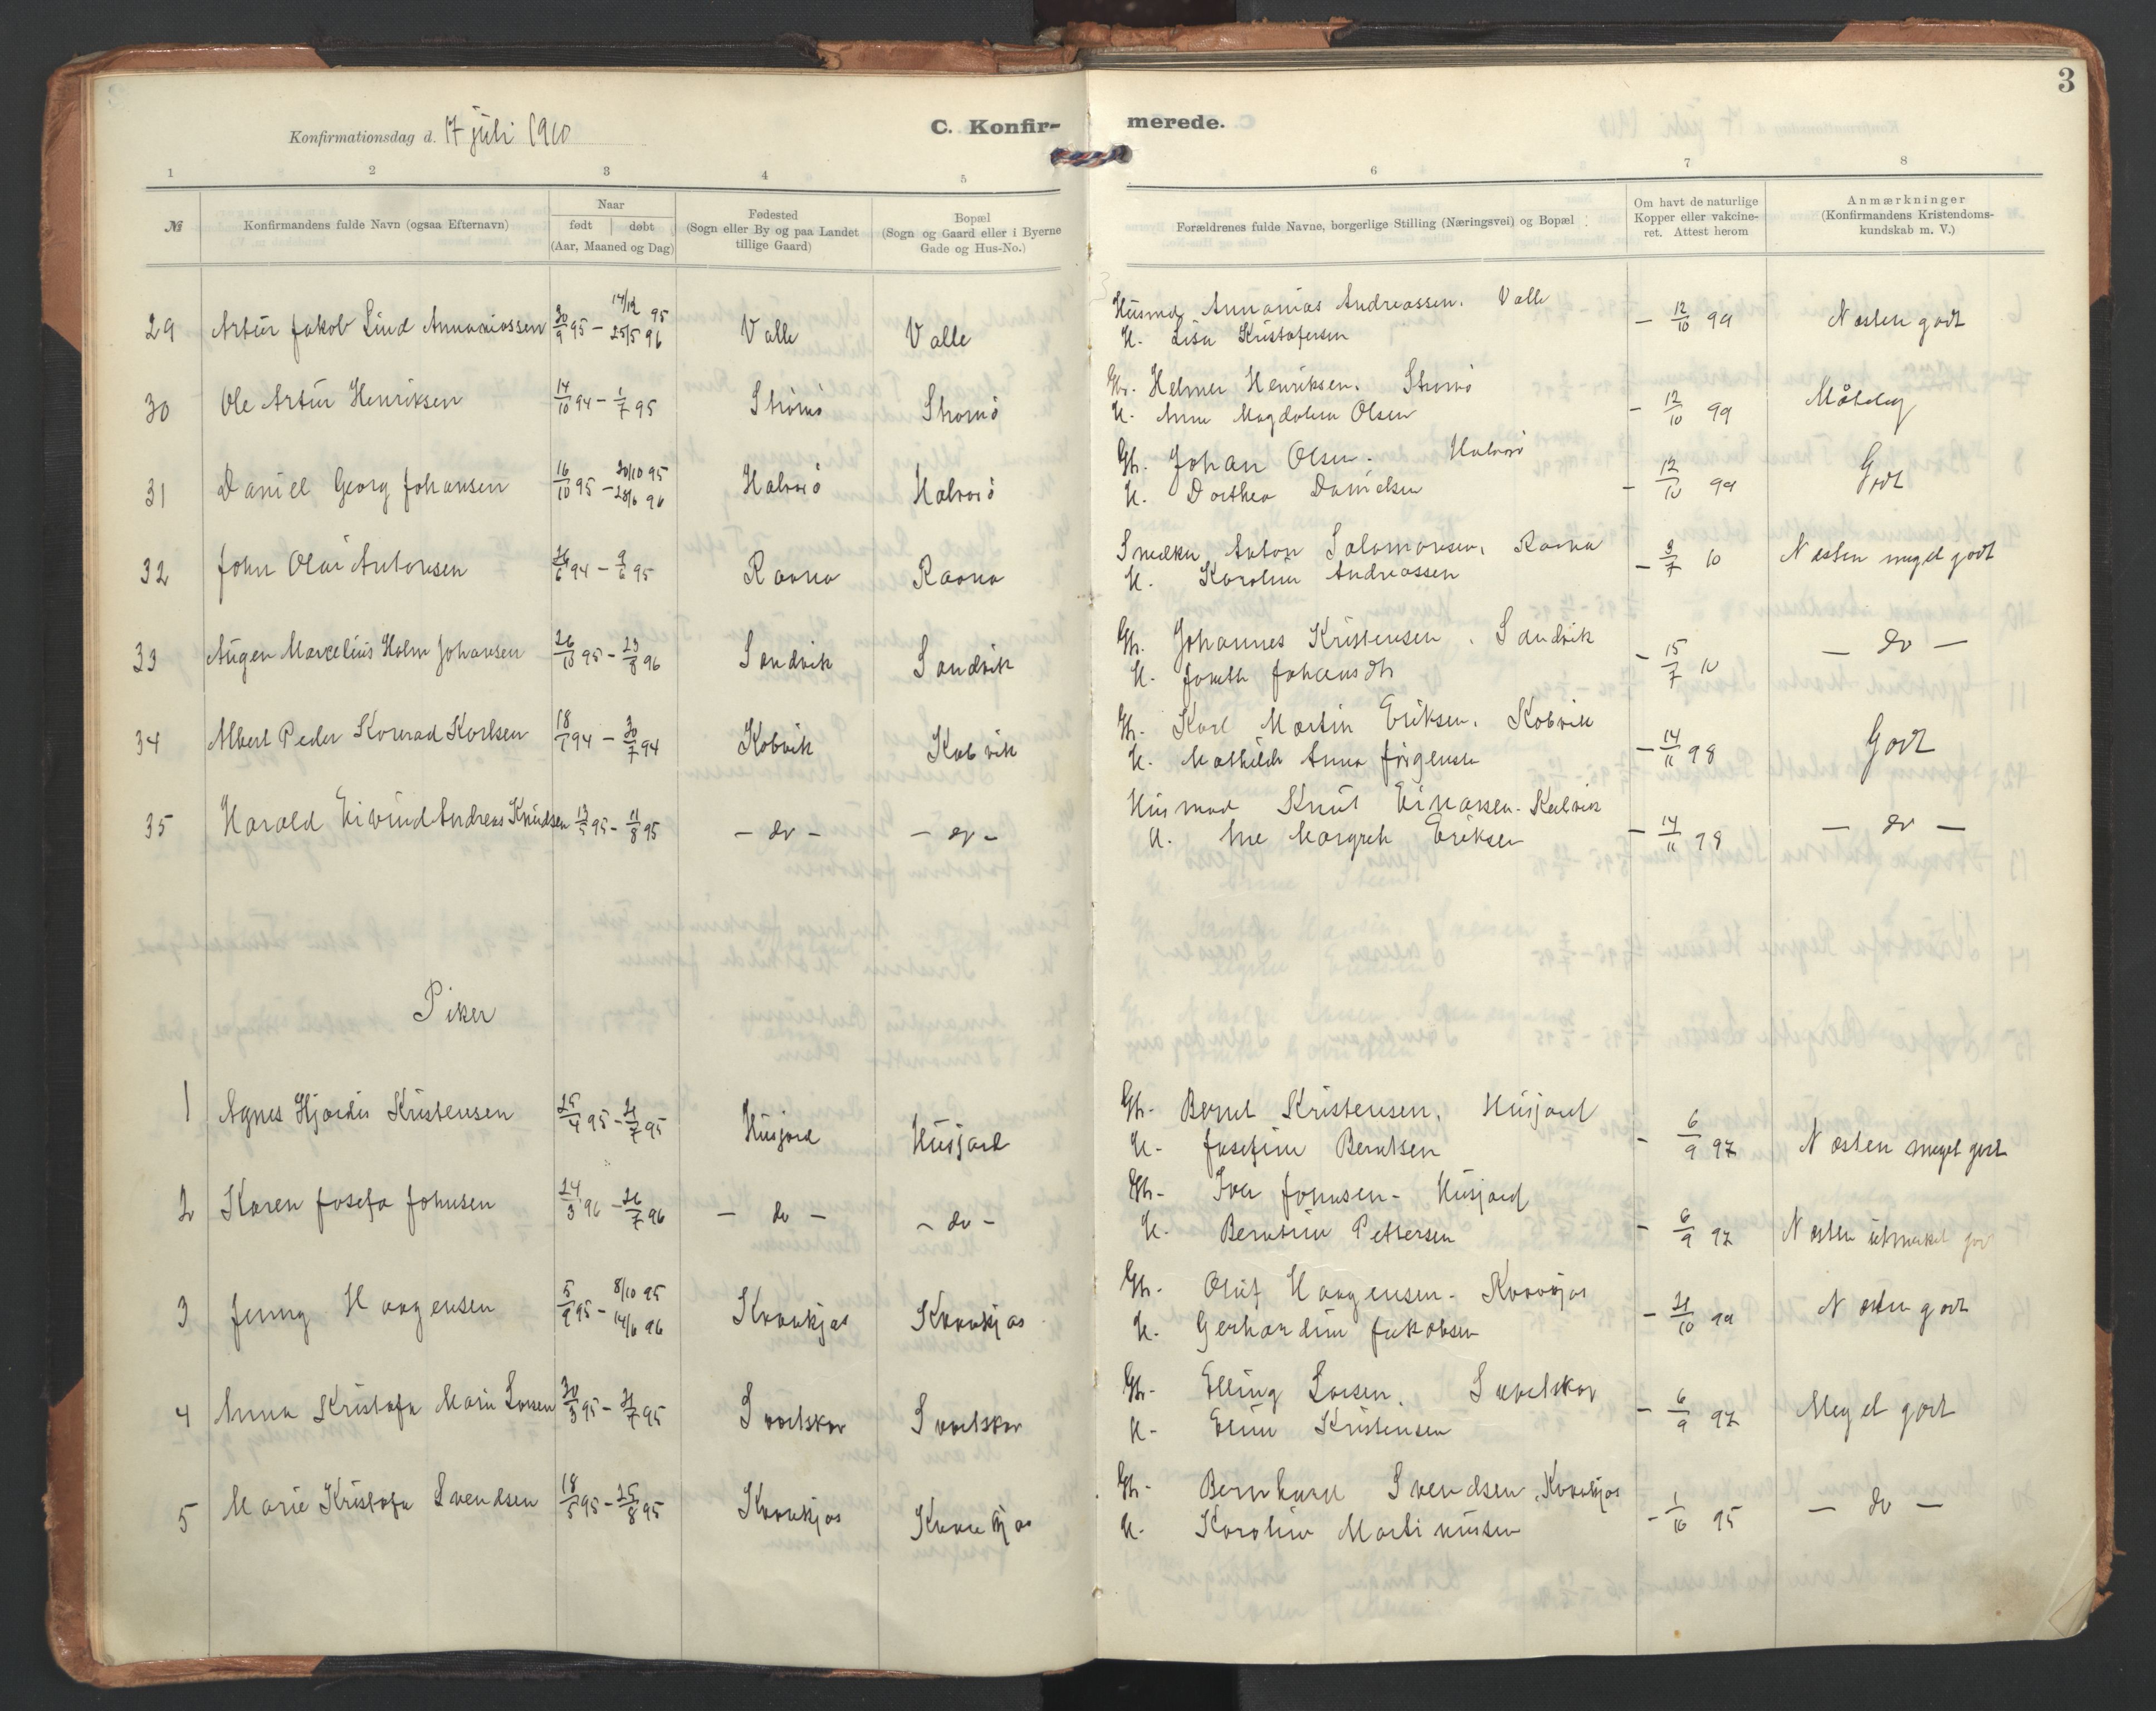 3
Konfirmationsdag d. 17 juli 1910
C. Konfir-
merede.
1 2 3 4 5 6 7 8
№
Konfirmandens fulde Navn (ogsaa Efternavn)
Naar
født | døbt
(Aar, Maaned og Dag)
Fødested
(Sogn eller By og paa Landet
tillige Gaard)
Bopæl
(Sogn og Gaard eller i Byerne
Gade og Hus-No.)
Forældrenes fulde Navne, borgerlige Stilling (Næringsvei) og Bopæl
Om havt de naturlige
Kopper eller vakcine-
ret. Attest herom
Anmærkninger
(Konfirmandens Kristendoms-
kundskab m. V.)
29 Artur Jakob Lind Annaniassen 30/9 95 – 14/12 95 25/5 96 Valle Valle
Husmd. Annanias Andreassen. Valle
H. Lisa Kristofersen – 12/10 99 Næsten godt
30 Ole Artur Henriksen 14/10 94 – 1/7 95 Strømø Strømø
Gbr. Helmer Henriksen. Strømø
H. Anna Magdalena Olsen – 12/10 99 Måtelig
31 Daniel Georg Johansen 16/10 95 – 20/10 95 28/6 96 Halvøiø Halvøiø
Gbr. Johan Olsen.
H. Dorthea Danielsen – 12/10 99 Godt
32 John Olai Antonsen 26/6 94 – 9/6 95 Raana Raana
Snedker Anton Salomonsen, Raana
H. Karoline Andreassen – 9/7 10 Næsten meget godt
33 Augen Marcelius Holm Johansen 26/10 95 – 23/8 96 Sandvik Sandvik
Gbr. Johannes Kristensen, Sandvik
H. Johansdtr – 15/7 10 – do –
34 Albert Peder Konrad Karlsen 18/1 94 – 30/7 94 Kobvik Kobvik
Gbr. Karl Martin Eriksen, Kobvik
H. Mathilde Anna Jørgensen – 14/11 98 Godt
35 Harald Eivind Andreas Knudsen 13/5 95 – 11/8 95 – do – – do –
Husmand Knut Einarsen. Kobvik
H. Ane Margreth Eriksen – 14/11 98 – do –
Piker
1 Agnes Hjørdis Kristensen 25/4 95 – 21/7 95 Husjord Husjord
Gbr. Bernt Kristensen, Husjord
H. Josefine Berntsen – 6/9 97 Næsten meget godt
2 Karen Josefa Johnsen 24/3 96 – 26/7 96 – do – – do –
Gbr. Iver Johnsen – Husjord
H. Berntine Pettersen – 6/9 97 Næsten utmerket godt
3 Jenny Haagensen 5/9 95 – 8/10 95 14/6 96 Kvankjos Kvankjos
Gbr. Oluf Haagensen –
H. Gerhardine Jakobsen – 21/10 99 Næsten godt
4 Anna Kristofa Marie Larsen 30/3 95 – 21/7 95 Svartskar Svartskar
Gbr. Elling Larsen. Svartskar
H. Eline Kristensen – 6/9 97 Meget godt
5 Marie Kristofa Svendsen 18/5 95 – 25/8 95 Kvankjos Kvankjos
Gbr. Bernhard Svendsen, Kvankjos
H. Karoline Martinussen – 1/10 95 – do –